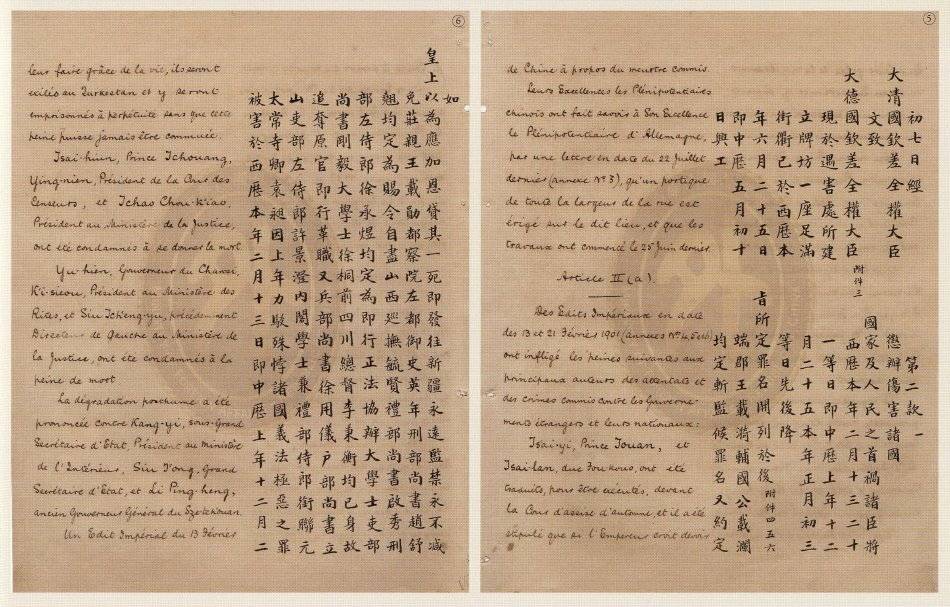 ⑤
de Chine à propos du meurtre commis.
Leurs Excellences les Plénipotentiaires
chinois ont fait savoir à Son Excellence
le Plénipotentiaire d'Allemagne,
par une lettre en date du 22 juillet
dernier (annexe No 3), qu'un portique
de toute la largeur de la rue est
érigé sur le dit lieu, et que les
travaux ont commencé le 25 juin dernier.
Article II (a).
Des Edits Impériaux en date
des 13 et 21 Février 1901 (annexes Nos 4, 5 et 6)
ont infligé les peines suivantes aux
principaux auteurs des attentats et
des crimes commis contre les Gouverne-
ments étrangers et leurs nationaux:
Tsai-yi, Prince Touan, et
Tsai-lan, duc Fou kouo, ont été
traduits, pour être exécutés, devant
la Cour d'assise d'automne, et il a été
stipulé que si l'Empereur croit devoir
初七日經
大清國欽差全權大臣
文致
大德國欽差全權大臣附件三
現於遇害處所建
立牌坊一座足滿
街衢已於西歷本
年六月二十五日
即中歷五月初十
日興工
第二款 一
懲辦傷害諸國
國家及人民之首禍諸臣將
西歷本年二月十三二十
一等日即中歷上年十二
月二十五本年正月初三
等日先後降
旨所定罪名開列於後附件四五六
端郡王載漪輔國公載瀾
均定斬監候罪名又約定
⑥
leur faire grâce de la vie, ils seront
exilés au Turkestan et y seront
emprisonnés à perpétuité sans que cette
peine puisse jamais être commuée.
Tsai-hiun, Prince Tchouang,
Ying-nien, Président de la Cour des
Censeurs, et Tchao Chou-k'iao,
Président au Ministère de la Justice,
ont été condamnés à se donner la mort
Yu-hien, Gouverneur du Chansi,
K'i-sieou, Président au Ministère des
Rites, et Siu Tch'eng-yu, précédemment
Directeur de Gauche au Ministère de
la Justice, ont été condamnés à la
peine de mort
La dégradation posthume a été
prononcée contre Kang-yi, sous-Grand
Secrétaire d'Etat, Président au Ministère
de l'Intérieur, Siu T'ong, Grand
Secrétaire d'Etat, et Li Ping-heng,
ancien Gouverneur Général du Szetchouan.
Un Edit Impérial du 13 Février
如
皇上以為應加恩貸其一死即發往新疆永遠監禁永不減
免莊親王載勛都察院左都御史英年刑部尚書趙舒
翹均定為賜令自盡山西巡撫毓賢禮部尚書啟秀刑
部左侍郎徐承煜均定為即行正法協辦大學士吏部
尚書剛毅大學士徐桐前四川總督李秉衡均已身故
追奪原官即行革職又兵部尚書徐用儀戶部尚書立
山吏部左侍郎許景澄內閣學士兼禮部侍郎銜聯元
太常寺卿袁昶因上年力駁殊悖諸國義法極惡之罪
被害於西歷本年二月十三日即中歷上年十二月二